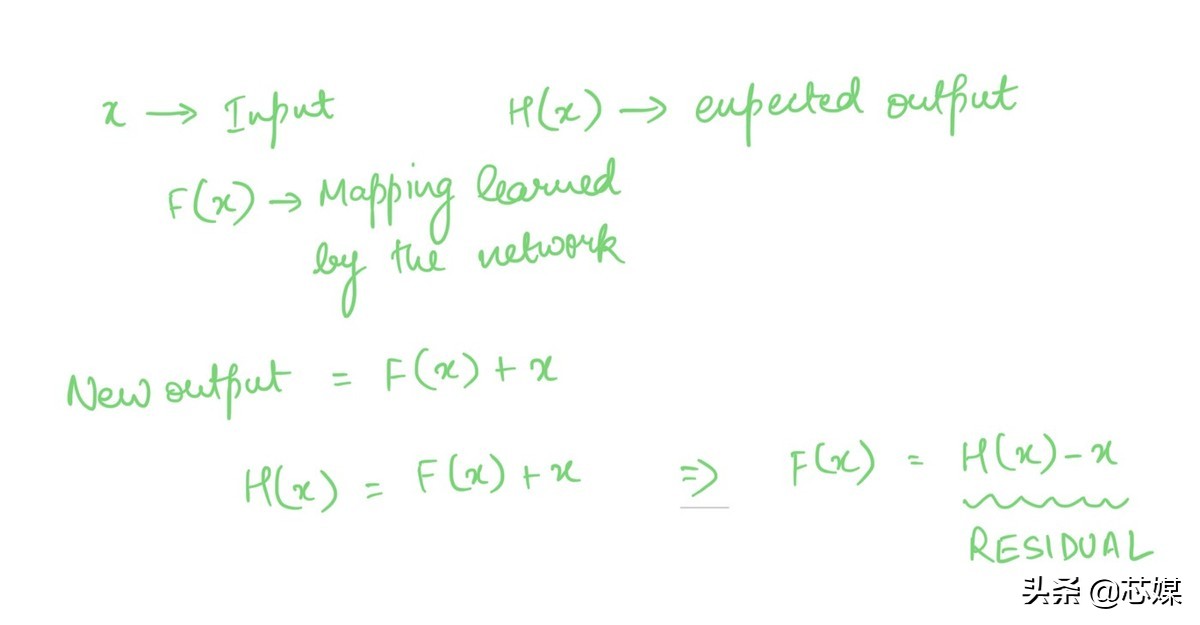 x → Input
H(x) → expected output
F(x) → Mapping learned
by the network
New output = F(x) + x
H(x) = F(x) + x ⇒ F(x) = H(x) - x
RESIDUAL
头条 @芯媒